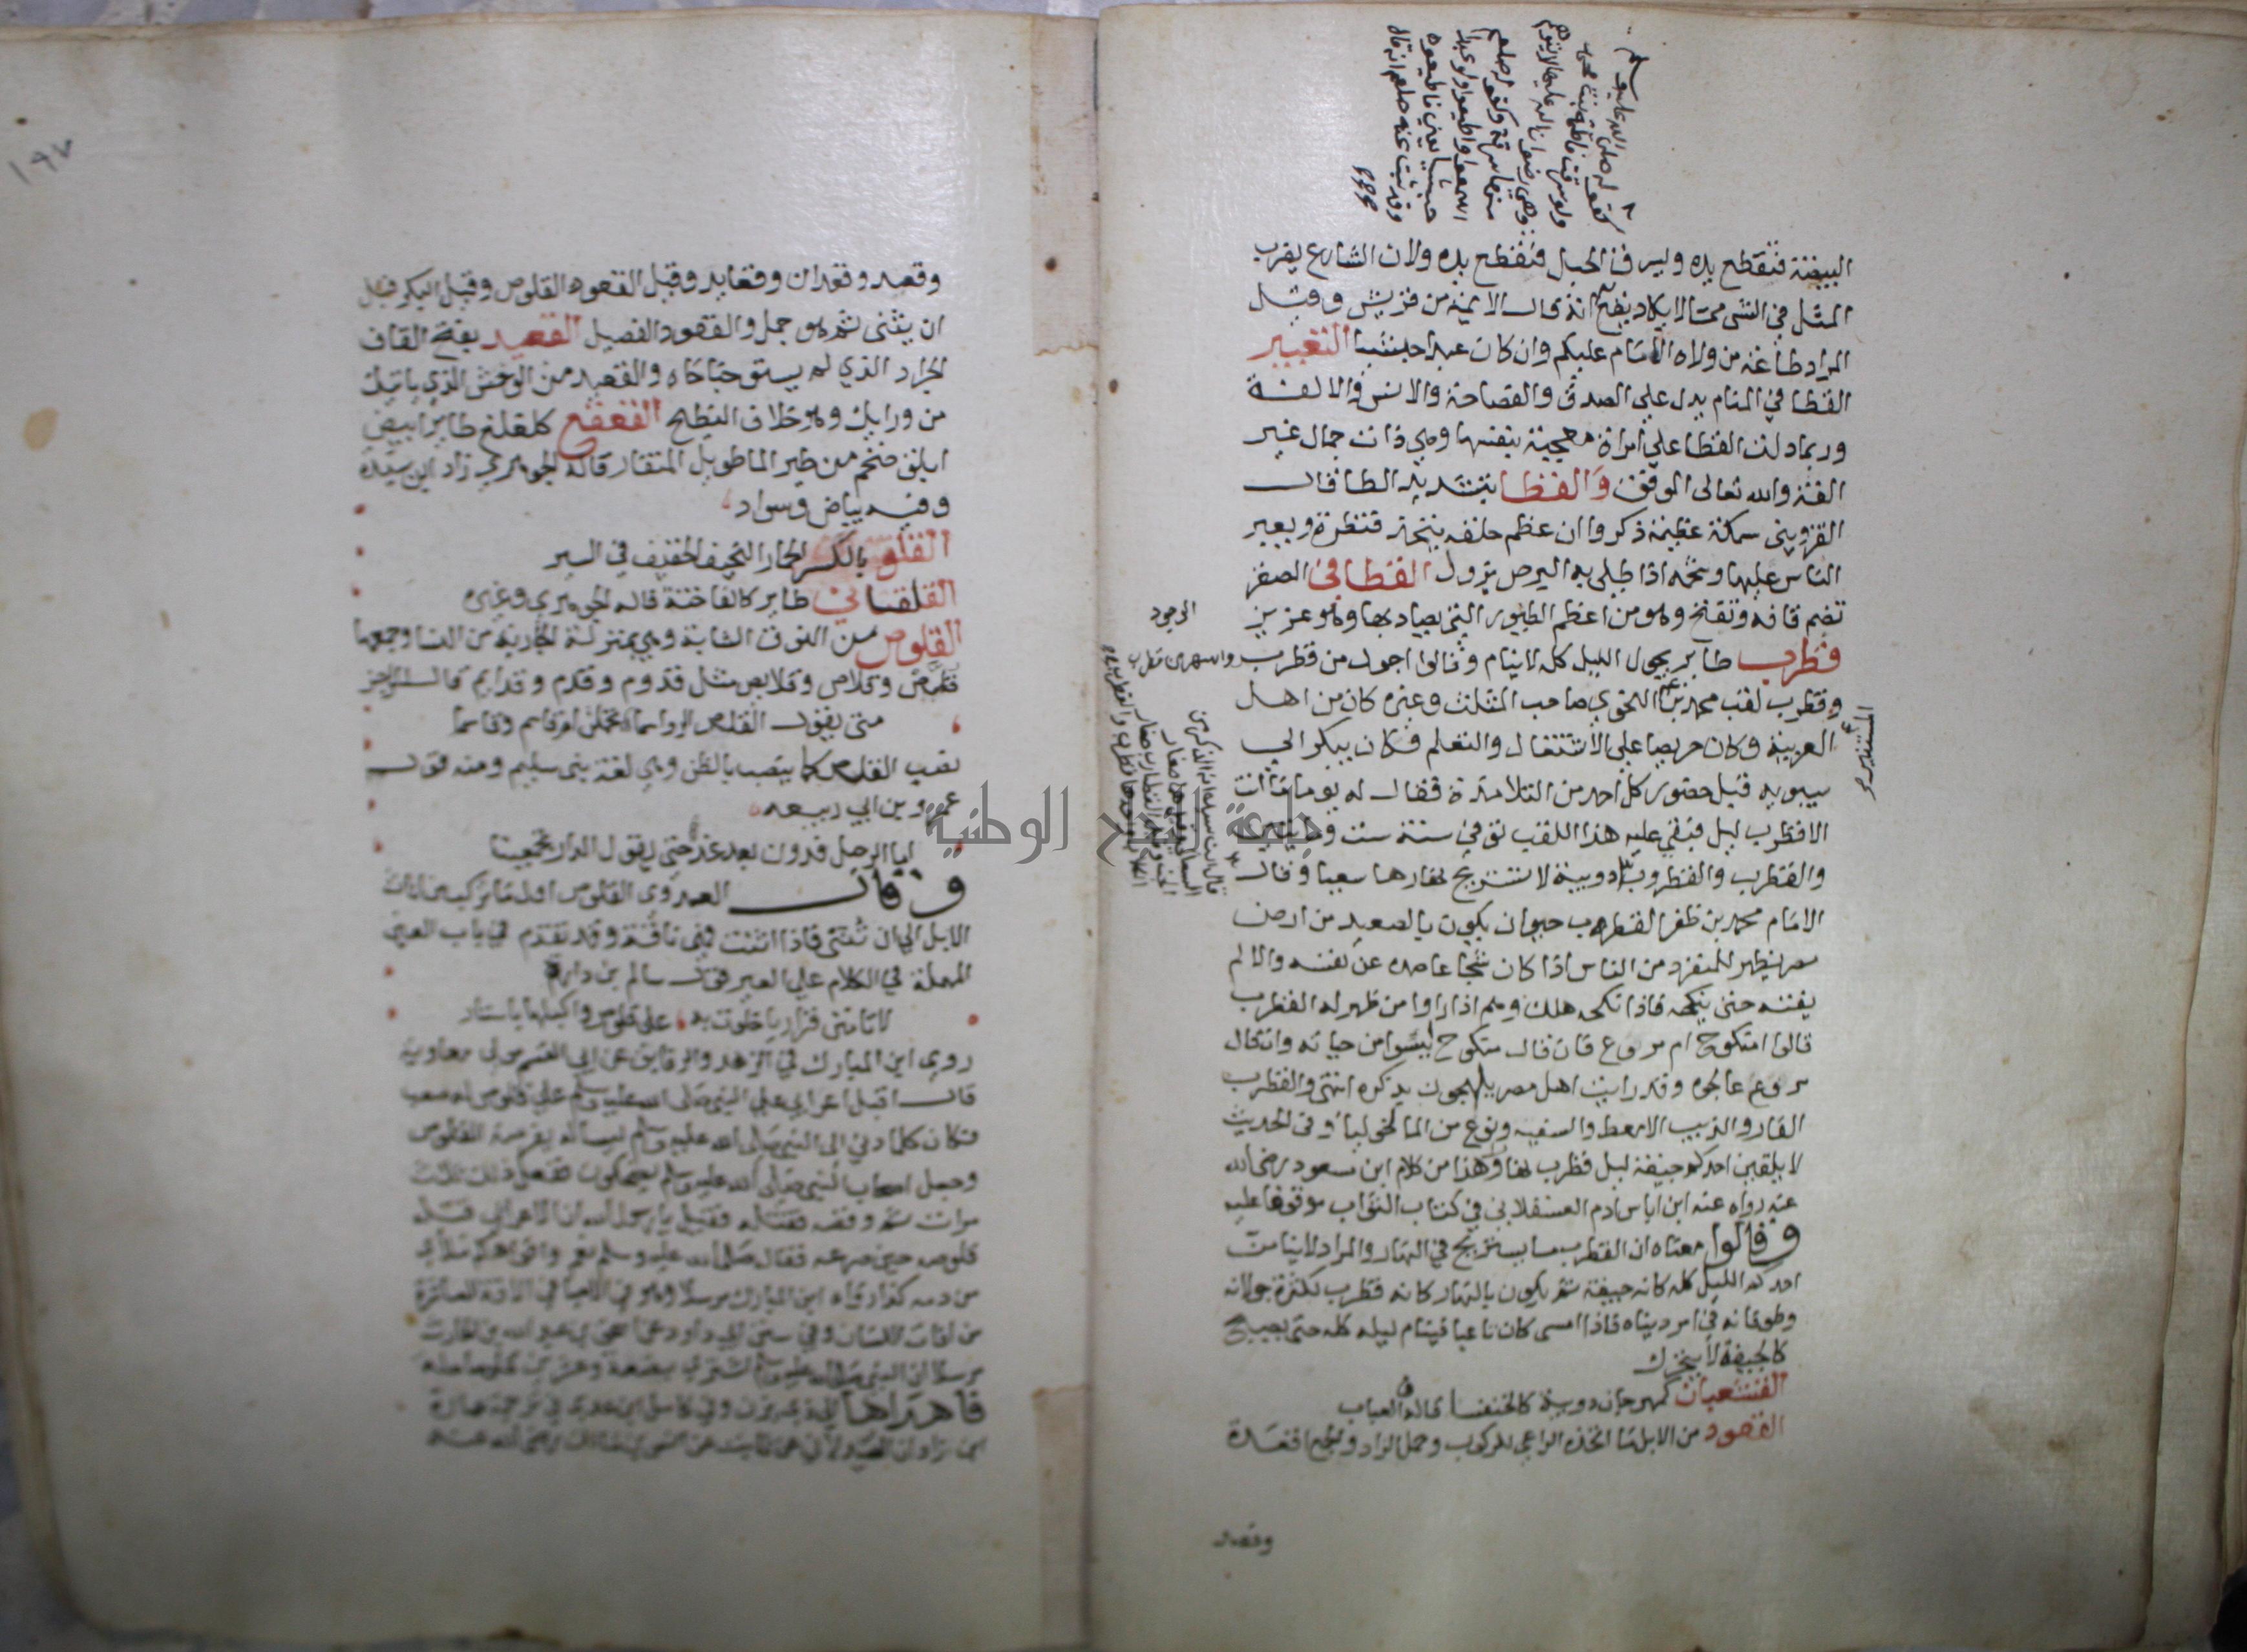 البيضة فتقطع يده ويسرق الحبل فتقطع يده ولان الشارع يضرب
المثل في الشي مما لا يكاد يقع انه قال الايمة من قريش وقيل
المراد طاعة من ولاه الامام عليكم وان كان عبدا حبشيا التعبير
القطا في المنام يدل علي الصدق والفصاحة والانس والالفة
وربما دلت القطا علي امراة معجبة بنفسها وهي ذات جمال غير
الفة والله تعالى الموفق والقطا بتشديد الطا قال
القزويني سمكة عظيمة ذكروا ان عظم ضلعه يتخذ قنطرة ويعبر
الناس عليها وشحمه اذا طلي به البرص يزول القطامي الصقر
تضم قافه وتفتح وهو من اعظم الطيور التي يصاد بها وهو عزيز
الوجود
قطرب طاير يجول الليل كله لا ينام وقالوا اجول من قطرب واسهر من قطرب
وقطرب لقب محمد بن المستنير النحوي صاحب المثلث وغيره كان من اهل
العربية وكان حريصا علي الاشتغال والتعلم فكان يبكر الي
سيبويه قبل حضور كل احد من التلامذة فقال له يوما ما انت
الا قطرب ليل فبقي عليه هذا اللقب توفي سنة ست ومايتين
والقطرب والقطروب دويبة لا تستريح نهارها سعيا وقال
الامام محمد بن ظفر القطرب حيوان يكون بالصعيد من ارض
مصر يظهر للمنفرد من الناس اذا كان شجاعا صده عن نفسه والا لم
يفته حتى ينكحه فاذا نكحه هلك وهم اذا راوا من ظهر له القطرب
قالوا امنكوح ام مروع فان قال منكوح ايسوا من حياته وان قال
مروع عالجوه وقد رايت اهل مصر يلهجون بذكره انتهى والقطرب
الفار والذيب الامعط والسفيه ونوع من المالنخوليا وفي الحديث
لا يلقين احدكم جيفة ليل قطرب نهار وهذا من كلام ابن مسعود رضى الله
عنه رواه عنه ابن اياس ادم العسقلاني في كتاب الثواب موقوفا عليه
وقالوا معناه ان القطرب لا يستريح في النهار والمراد لا ينامن
احدكم الليل كله كانه جيفة ثم يكون بالنهار كانه قطرب لكثرة جولانه
وطوفانه في امر دنياه فاذا امسى كان تاعبا فينام ليله كله حتى يصبح
كالجيفة لا يتحرك
القشعبان كمهرجان دويبة كالخنفسا قاله في العباب
القعود من الابل ما اتخذه الراعي للركوب وحمل الزاد والجمع اقعدة
وقعد
١٩٧
وقعد وقعدان وقعايد وقيل القعود القلوص وقيل البكر قبل
ان يثني ثم هو جمل والقعود الفصيل القعيد بفتح القاف
الجراد الذي لم يستو جناحاه والقعيد من الوحش الذي ياتيك
من ورايك وهو خلاف النطيح القعقع كلقلق طاير ابيض
ابلق ضخم من طير الما طويل المنقار قاله الجوهري زاد ابن سيده
وفيه بياض وسواد
القلو بالكسر الحمار الخفيف في السير
القلقساني طاير كالفاختة قاله الجوهري وغيره
القلوص من النوق الشابة وهي بمنزلة الجارية من النسا وجمعها
قلص وقلاص وقلايص مثل قدوم وقدم وقدايم قال الراجز
متى يقول القلص الرواسما يحملن ام قاسم وقاسما
نصب القلص كما ينصب بالظن وهي لغة بني سليم ومنه قول
عمرو بن ابي ربيعه
اما الرحيل فدون بعد غد فمتى يقول الدار تجمعنا
وقال العدوى القلوص اول ما تركب من اناث
الابل الي ان تثنى فاذا اثنت فهي ناقة وقد تقدم في باب العين
المهملة في الكلام علي العير قول سالم بن دارة
لا تامنن فزاريا خلوت به على قلوصك واكتبها باسيار
روى ابن المبارك في الزهد والرقايق عن ابي القسم مولى معاوية
قال اقبل اعرابي علي النبي صلى الله عليه وسلم علي قلوص له صعب
فكان كلما دني الى النبي صلى الله عليه وسلم ليساله يفر منه القلوص
وجعل اصحاب النبي صلى الله عليه وسلم يضحكون ففعل ذلك ثلاث
مرات ثم وقصه فقتله فقيل يا رسول الله ان الاعرابي قتله
قلوصه حين صرعه فقال صلى الله عليه وسلم نعم وافواهكم ملأى
من دمه كذا رواه ابن المبارك مرسلا وهو في الاحيا في الافة العاشرة
من افات اللسان وفي سنن ابي داود عن اسحق بن عبد الله بن الحارث
مرسلا ان النبي صلى الله عليه وسلم اشترى ببضعة وعشرين قلوصا حلة
فاهداها الي ذي يزن وفي كامل ابن عدي في ترجمة عمارة